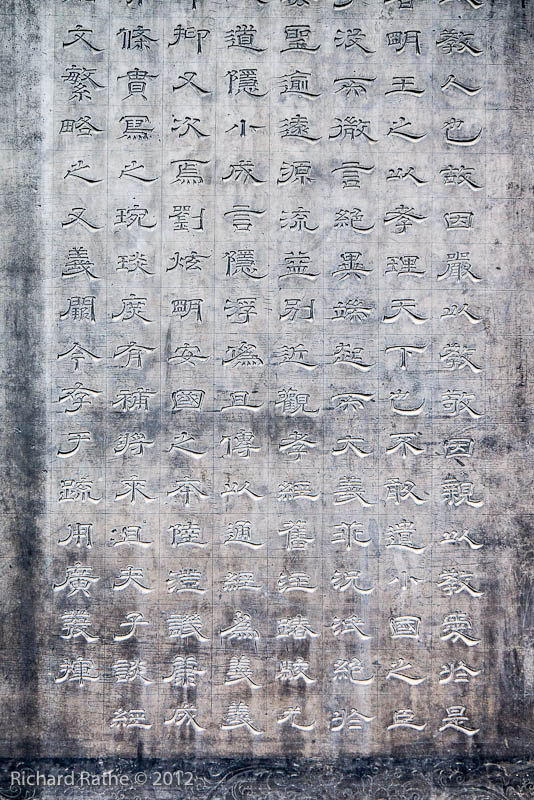 教人也故因嚴以教敬因親以教愛於是
明王之以孝理天下也不敢遺小國之臣
沒而微言絕異端起而大義乖況泯絕於
聖逾遠源流益別近觀孝經舊注踳駮尤
道隱小成言隱浮偽且傳以通經為義義
抑又次焉劉炫明安國之本陸澄譏康成
條貫寫之琬琰庶有補將來且夫子談經
文繁略之又義闕今存于疏用廣發揮
Richard Rathe © 2012